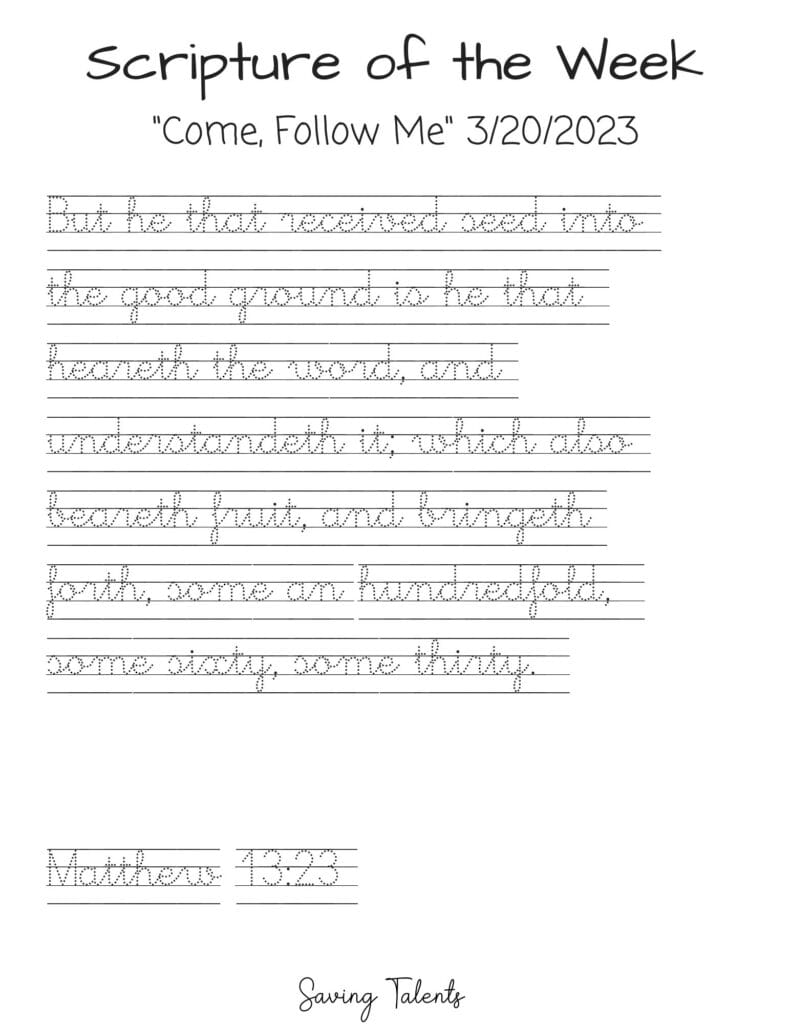 Scripture of the Week
"Come, Follow Me" 3/20/2023
But he that received seed into
the good ground is he that
heareth the word, and
understandeth it; which also
beareth fruit, and bringeth
forth, some an hundredfold,
some sixty, some thirty.
Matthew 13:23
Saving Talents